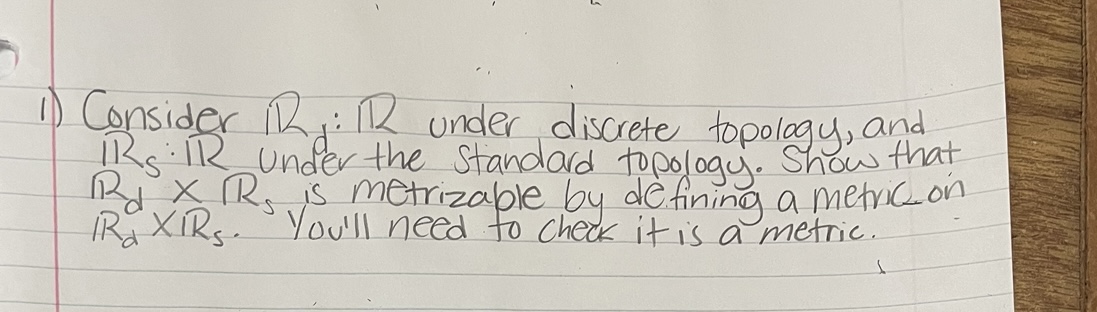 1) Consider ℝ_d: ℝ under discrete topology, and
ℝ_s: ℝ under the standard topology. Show that
ℝ_d × ℝ_s is metrizable by defining a metric on
ℝ_d × ℝ_s. You'll need to check it is a metric.